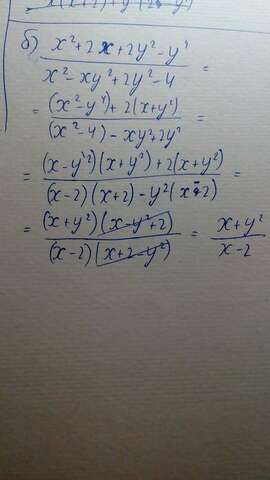 б) (x²+2x+2y²-y⁴)/(x²-xy²+2y²-4) =
= ((x²-y⁴)+2(x+y²))/((x²-4)-xy²+2y²) =
= ((x-y²)(x+y²)+2(x+y²))/((x-2)(x+2)-y²(x-2)) =
= ((x+y²)(x-y²+2))/((x-2)(x+2-y²)) = (x+y²)/(x-2)